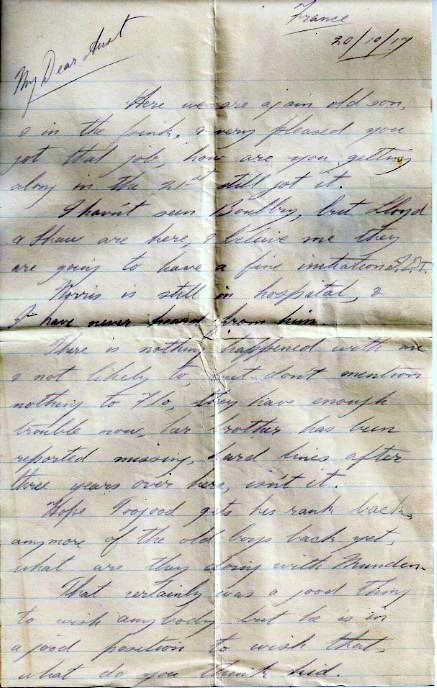 France
20/10/17
My Dear Aust
Here we are again old son,
& in the pink, & very pleased you
got that job, how are you getting
along in the 21st still got it.
I havn't seen Boultby, but Lloyd
& Shaw are here, & believe me they
are going to have a fine initiation
Norris is still in hospital, &
I have never heard from him.
There is nothing happened with me
& not likely to, but don't mention
nothing to Flo, they have enough
trouble now, her brother has been
reported missing, hard lines after
three years over here, isn't it.
Hope Toogood gets his rank back,
anymore of the old boys back yet,
what are they doing with Munden.
That certainly was a good thing
to wish anybody but he is in
a good position to wish that,
what do you think kid.